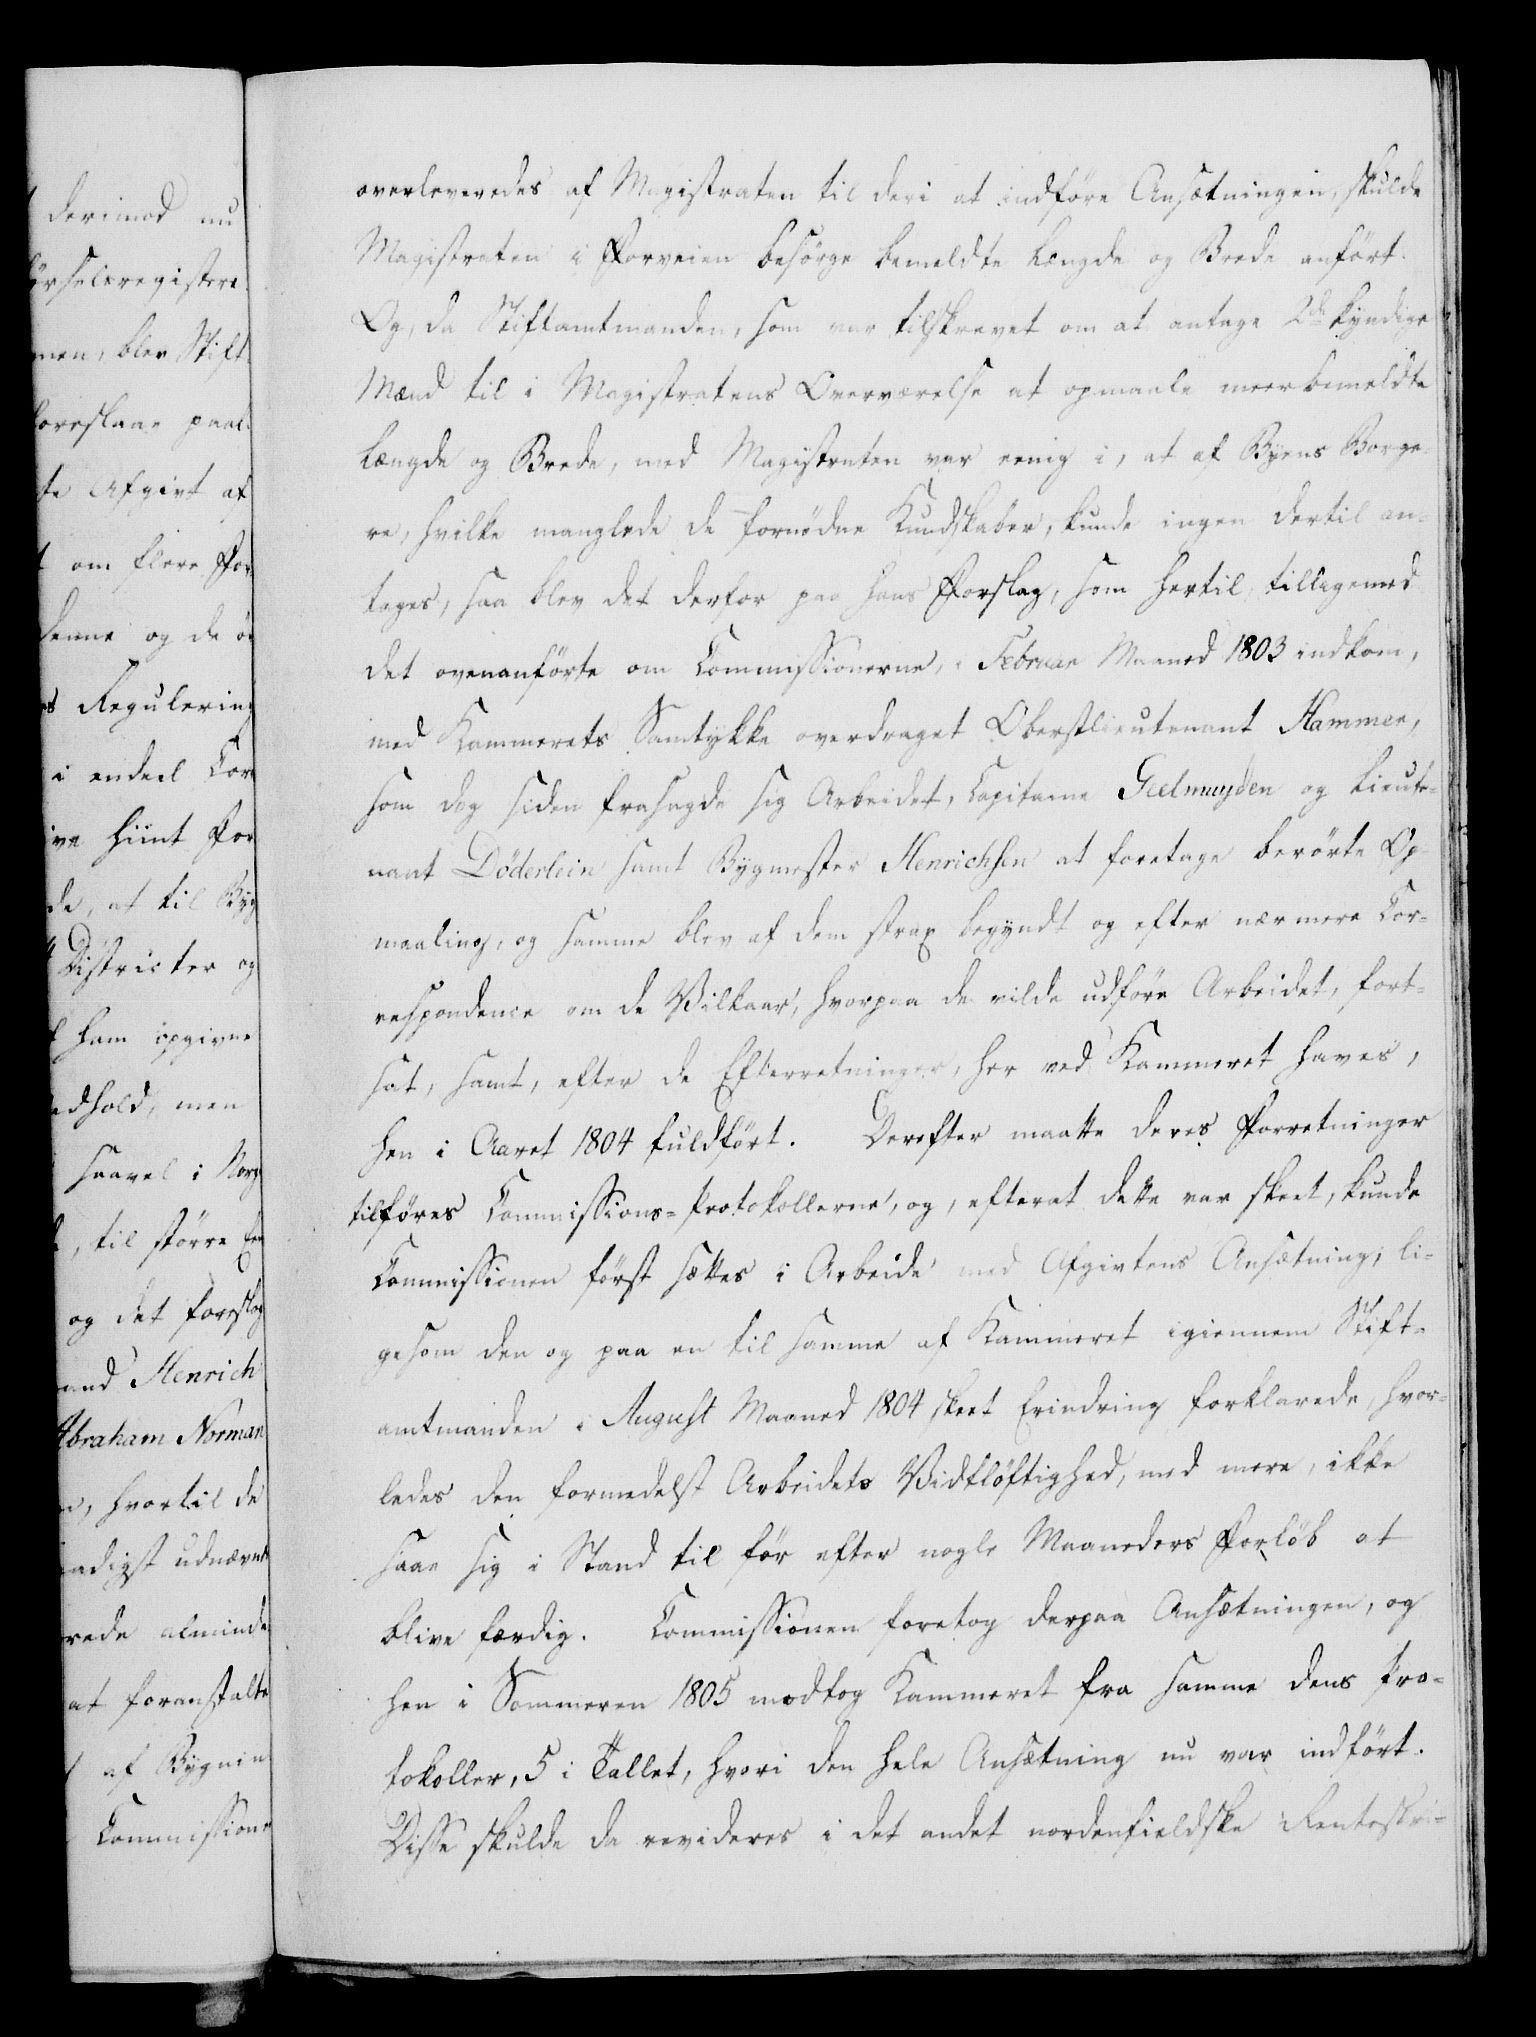 derimod nu
ørselsregistere
men, blev Stift
foreslaae paal
te Afgivt af
t om flere For
denne og de ö
s Regulering
i endeel Cor
ive hiint For
de, at til Byg
4 Districter og
f ham opgivne
edhold, men
saavel i Norg
, til större En
og det foreslog
and Henrich
Abraham Norman
n, hvortil de
aadigst udnævnt
rede alminde
at foranstalte
af Bygnin
Commissione
overleveredes af Magistraten til deri at indföre Ansætningen, skulde
Magistraten i Forveien besörge bemeldte Længde og Brede anfört.
Og, da Stiftamtmanden, som var tilskrevet om at antage 2de kyndige
Mænd til i Magistratens Overværelse at opmaale meerbemeldte
Længde og Brede, med Magistraten var eenig i, at af Byens Borge-
re, hvilke manglede de fornödne Kundskaber, kunde ingen dertil an-
tages, saa blev det derfor paa hans Forslag, som hertil, tilligemed
det ovenanförte om Commissionerne, i Februar Maaned 1803 indkom,
med Kammerets Samtykke overdraget Oberstlieutenant Hammer,
som dog siden frasagde sig Arbeidet, Capitaine Geelmuyden og Lieute-
nant Döderlein samt Bygmester Henrichsen at foretage berörte Op-
maaling, og samme blev af dem strax begyndt og efter nærmere Cor-
respondence om de Vilkaar, hvorpaa de vilde udföre Arbeidet, fort-
sat, samt, efter de Efterretninger, her ved Kammeret haves,
hen i Aaret 1804 fuldfört. Derefter maatte deres Forretninger
tilföres Commissions-Protokollerne, og, efterat dette var skeet, kunde
Commissionen först sættes i Arbeide med Afgivtens Ansætning, li-
gesom den og paa en til samme af Kammeret igiennem Stift-
amtmanden i August Maaned 1804 skeet Erindring forklarede, hvor-
ledes den formedelst Arbeidets Vidtlöftighed, med mere, ikke
saae sig i Stand til för efter nogle Maaneders Forlöb at
blive færdig. Commissionen foretog derpaa Ansætningen, og
hen i Sommeren 1805 modtog Kammeret fra samme dens Pro-
tokoller, 5 i Tallet, hvori den hele Ansætning nu var indfört.
Disse skulde da revideres i det andet nordenfieldske Renteskri-